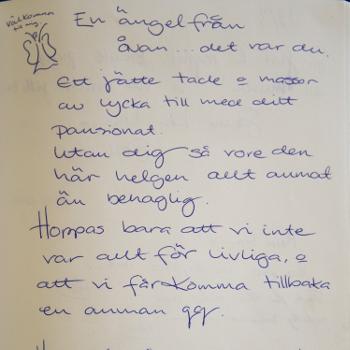 välkomna
till mig
En ängel från
ovan... det var du.
Ett jätte tack o massor
av lycka till med ditt
pansionat.
Utan dig så vore den
här helgen allt annat
än behaglig.
Hoppas bara att vi inte
var allt för livliga, o
att vi får komma tillbaka
en annan gg.